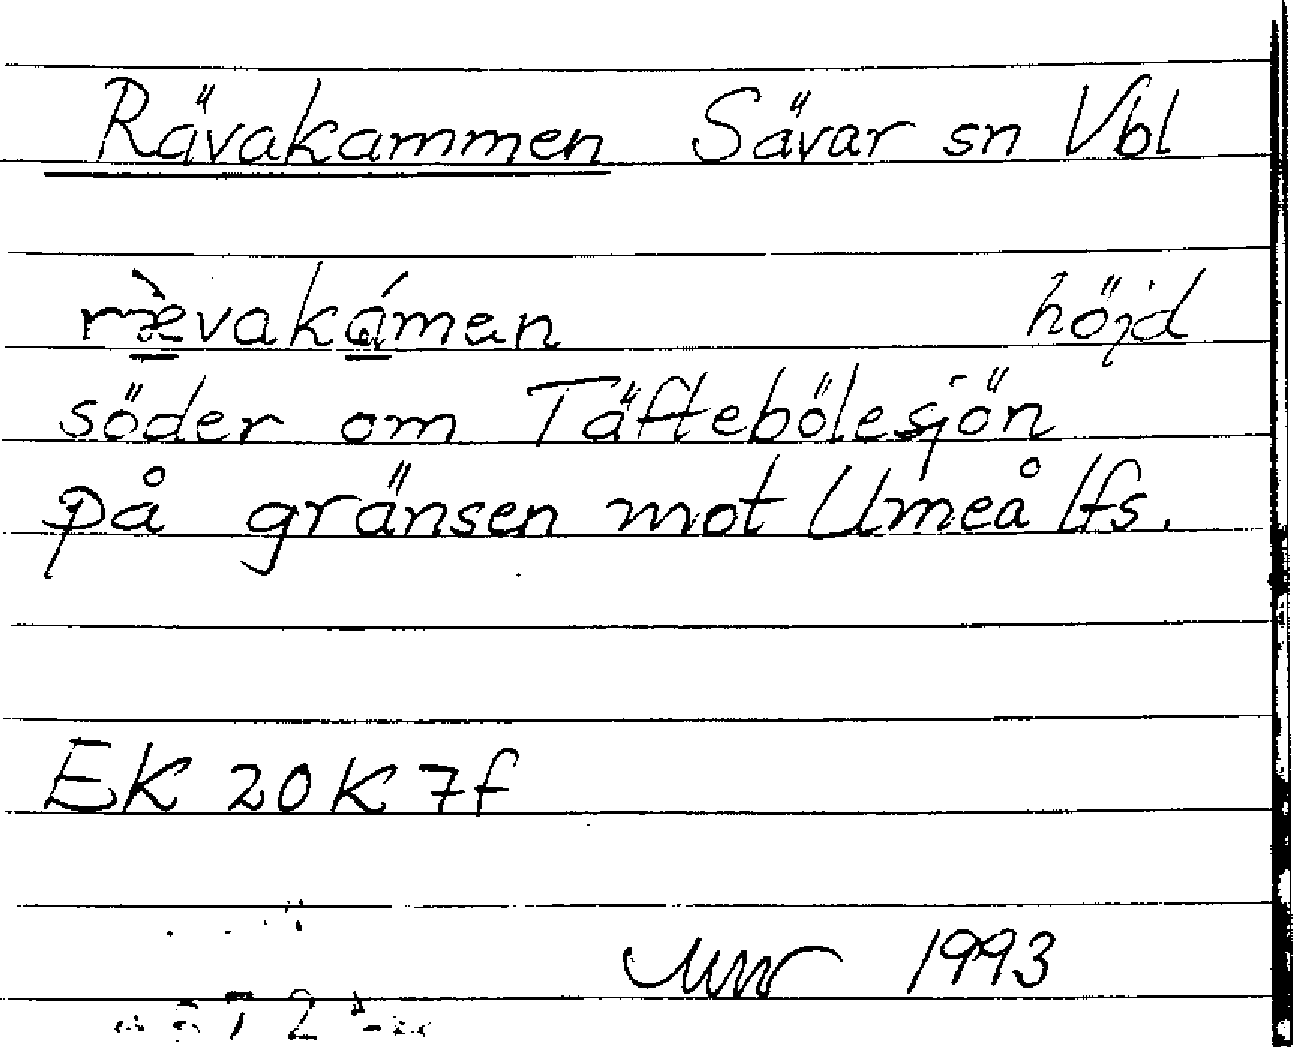 Rävakammen Sävar sn Vbl
ræ̀vakámen höjd
söder om Täftebölesjön
på gränsen mot Umeå lfs.
EK 20K 7f
1993